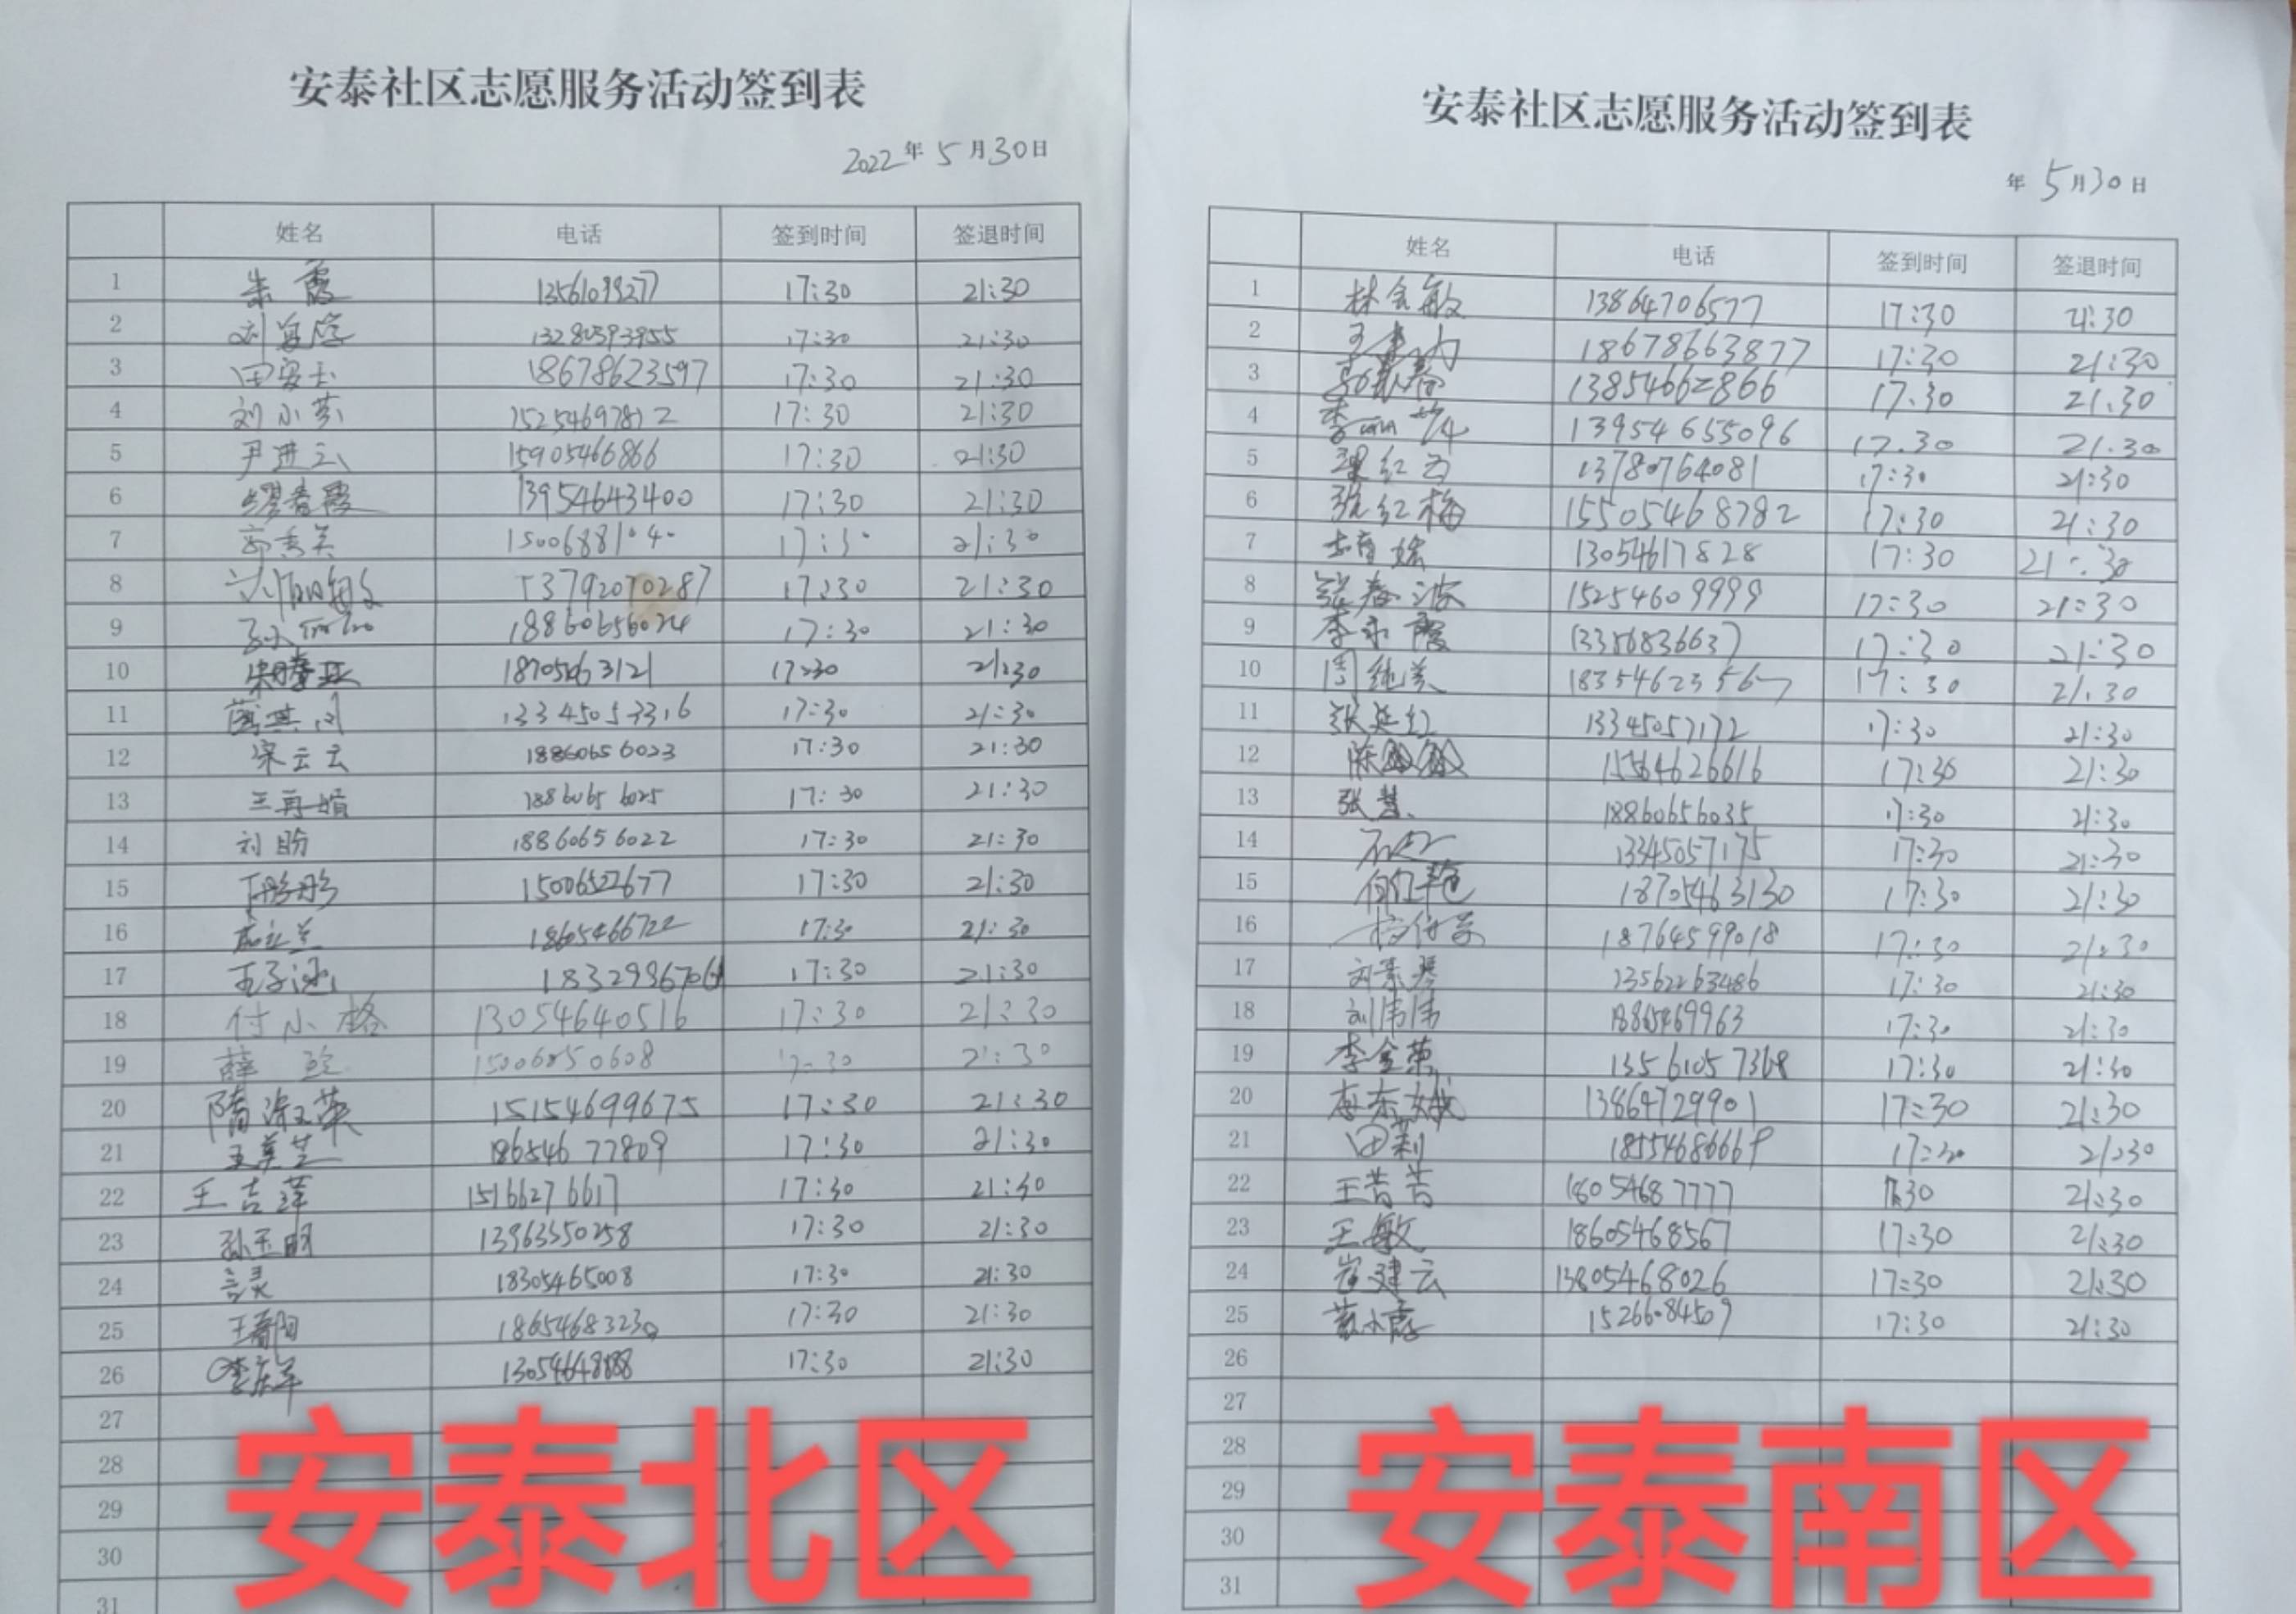 安泰社区志愿服务活动签到表
2022年5月30日
姓名 电话 签到时间 签退时间
1 朱霞 13561099277 17:30 21:30
2 13280393955 17:30 21:30
3 田安玉 18678623597 17:30 21:30
4 刘小英 15254697812 17:30 21:30
5 尹进云 15905466866 17:30 21:30
6 缪春霞 13954643400 17:30 21:30
7 郭秀美 15006881040 17:30 21:30
8 刘丽敏 13792070287 17:30 21:30
9 孙丽丽 18860656024 17:30 21:30
10 18705463121 17:30 21:30
11 13345053316 17:30 21:30
12 宋云云 18860656023 17:30 21:30
13 王再娟 18860656025 17:30 21:30
14 刘盼 18860656022 17:30 21:30
15 15006522677 17:30 21:30
16 18605466722 17:30 21:30
17 王子涵 17:30 21:30
18 付小格 13054640516 17:30 21:30
19 薛 17:30 21:30
20 隋 15154699675 17:30 21:30
21 王美芝 18654677809 17:30 21:30
22 王吉萍 15166276617 17:30 21:30
23 孙玉明 13963550258 17:30 21:30
24 18305465008 17:30 21:30
25 王春阳 18654683230 17:30 21:30
26 13054648888 17:30 21:30
27
28
29
30
31
安泰北区
安泰社区志愿服务活动签到表
年5月30日
姓名 电话 签到时间 签退时间
1 林会敏 13864706577 17:30 21:30
2 18678663877 17:30 21:30
3 13854662866 17:30 21:30
4 李丽华 13954655096 17.30 21.30
5 梁红云 13780764081 17:30 21:30
6 张红梅 15505468782 17:30 21:30
7 13054617828 17:30 21:30
8 张春波 15254609999 17:30 21:30
9 李永霞 13356836637 17:30 21:30
10 周纯美 18354623567 17:30 21:30
11 张延红 13345057172 17:30 21:30
12 陈 15564626616 17:30 21:30
13 张慧 18860656035 17:30 21:30
14 13345057175 17:30 21:30
15 18705463130 17:30 21:30
16 18764599018 17:30 21:30
17 刘景琴 13562263486 17:30 21:30
18 刘伟伟 17:30 21:30
19 李金荣 13561057368 17:30 21:30
20 李东娥 13864729901 17:30 21:30
21 田莉 17:30 21:30
22 王菁菁 18054687777 17:30 21:30
23 王敏 18605468567 17:30 21:30
24 崔建云 13805468026 17:30 21:30
25 15266084509 17:30 21:30
26
27
28
29
30
31
安泰南区